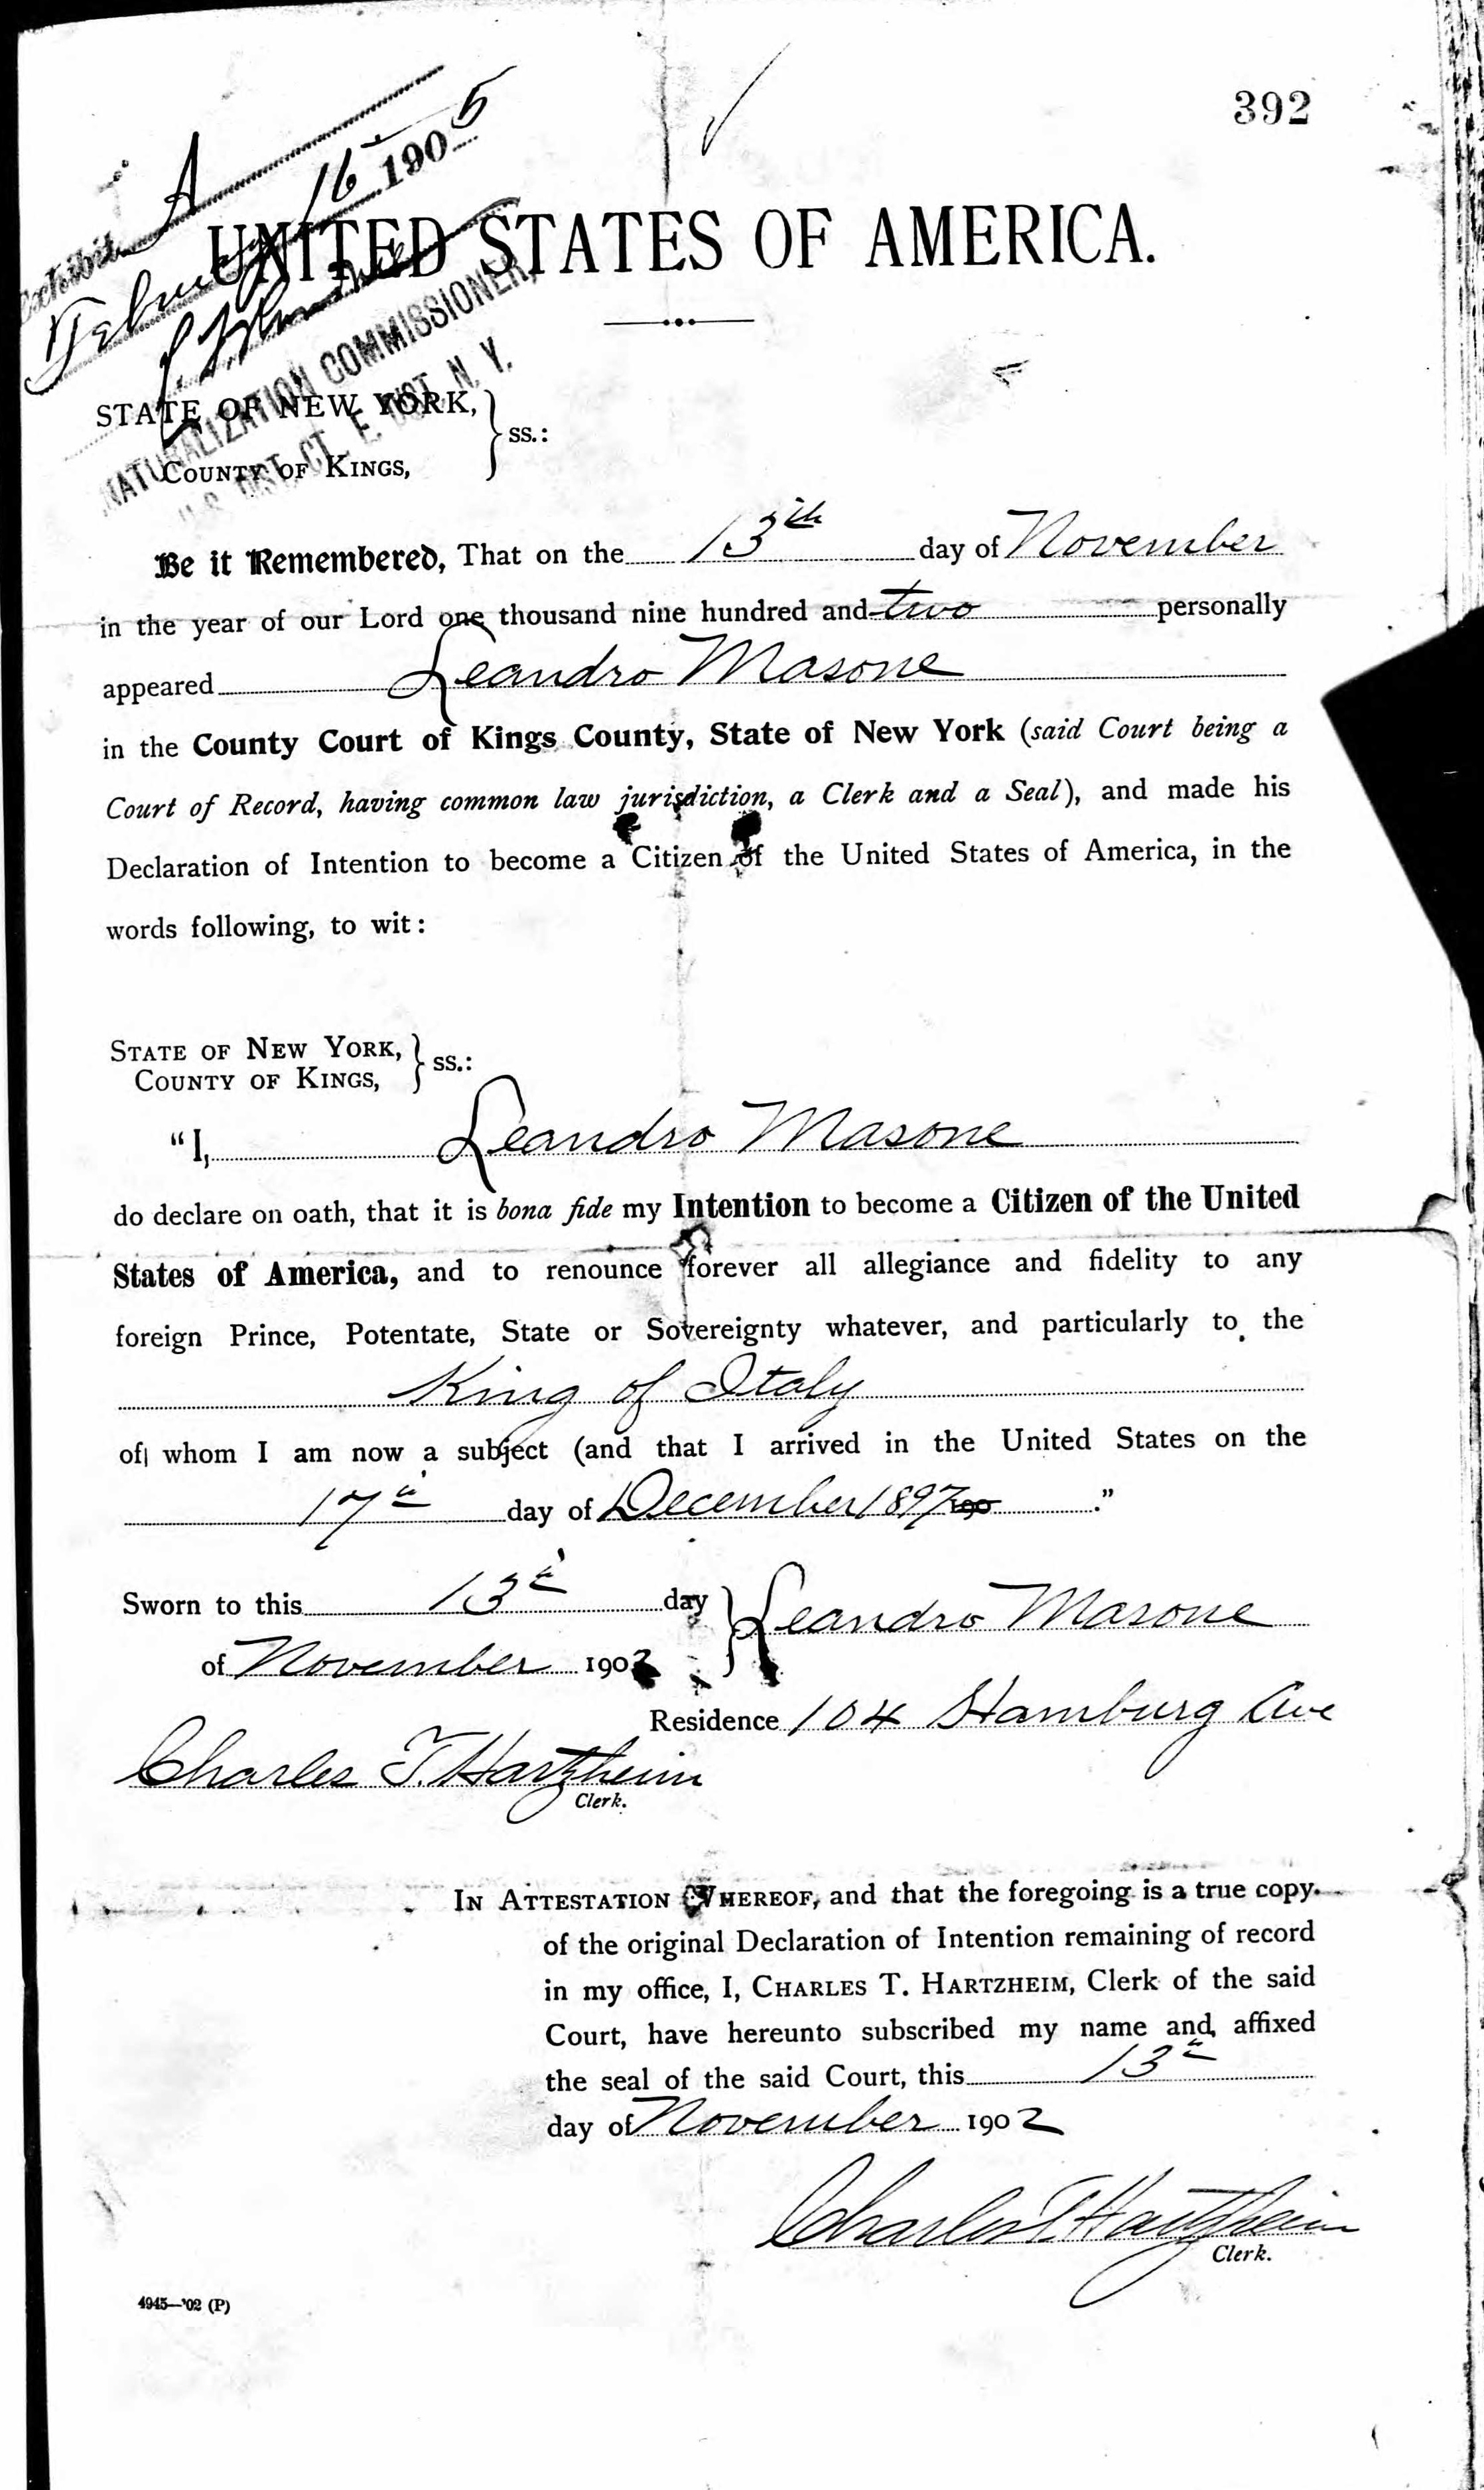 392
Exhibit A
February 16 1905
UNITED STATES OF AMERICA.
NATURALIZATION COMMISSIONER,
U.S. DIST. CT. E. DIST. N. Y.
STATE OF NEW YORK,
COUNTY OF KINGS,
ss.:
Be it Remembered, That on the 13th day of November
in the year of our Lord one thousand nine hundred and two personally
appeared Leandro Masone
in the County Court of Kings County, State of New York (said Court being a
Court of Record, having common law jurisdiction, a Clerk and a Seal), and made his
Declaration of Intention to become a Citizen of the United States of America, in the
words following, to wit:
STATE OF NEW YORK,
COUNTY OF KINGS,
ss.:
"I, Leandro Masone
do declare on oath, that it is bona fide my Intention to become a Citizen of the United
States of America, and to renounce forever all allegiance and fidelity to any
foreign Prince, Potentate, State or Sovereignty whatever, and particularly to the
King of Italy
of whom I am now a subject (and that I arrived in the United States on the
17th day of December 1897 190 ."
Sworn to this 13th day
of November 1902
Leandro Masone
Residence 104 Hamburg Ave
Charles T. Hartzheim
Clerk.
IN ATTESTATION WHEREOF, and that the foregoing is a true copy
of the original Declaration of Intention remaining of record
in my office, I, CHARLES T. HARTZHEIM, Clerk of the said
Court, have hereunto subscribed my name and affixed
the seal of the said Court, this 13th
day of November 1902
Charles T. Hartzheim
Clerk.
4945—'02 (P)